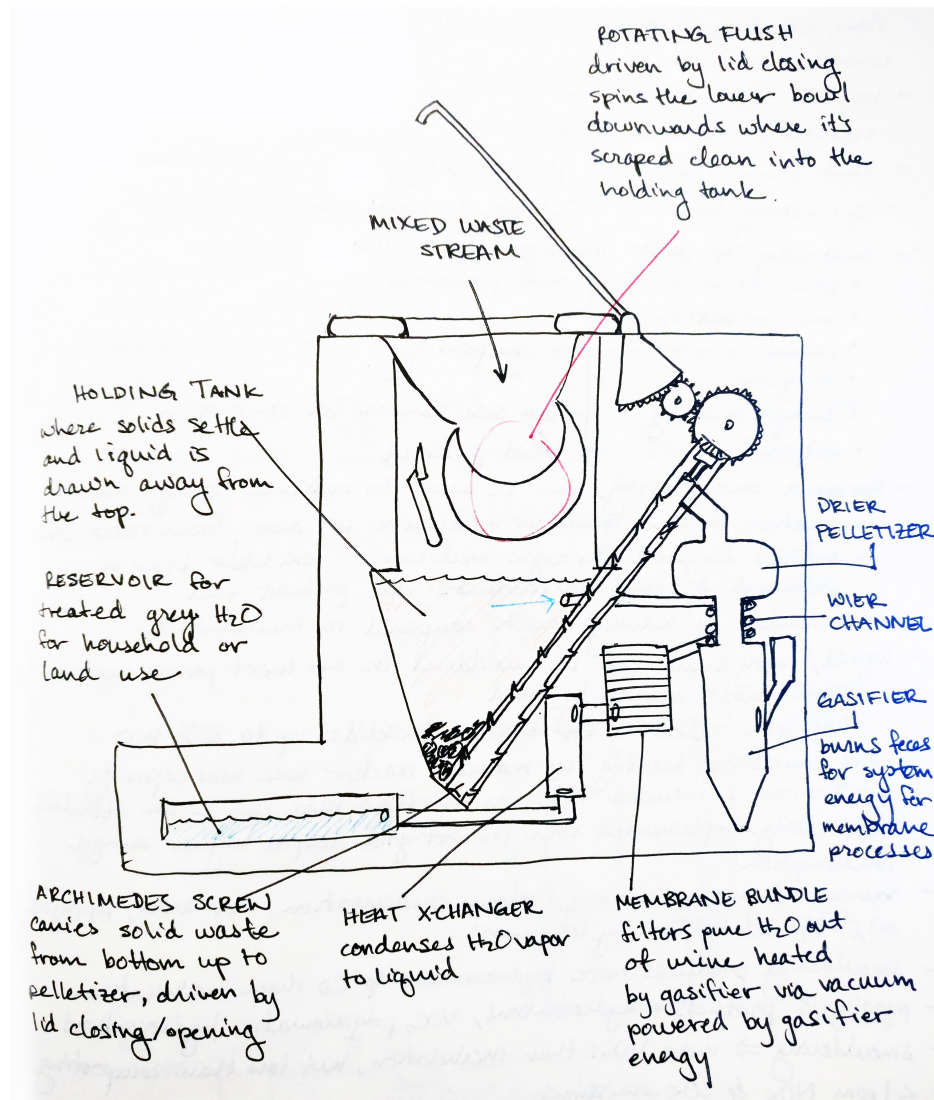 ROTATING FLUSH
driven by lid closing
spins the lower bowl
downwards where it's
scraped clean into the
holding tank.
MIXED WASTE
STREAM
HOLDING TANK
where solids settle
and liquid is
drawn away from
the top.
RESERVOIR for
treated grey H2O
for household or
land use
DRIER
PELLETIZER
WIER
CHANNEL
GASIFIER
burns feces
for system
energy for
membrane
processes
ARCHIMEDES SCREW
carries solid waste
from bottom up to
pelletizer, driven by
lid closing/opening
HEAT X-CHANGER
condenses H2O vapor
to liquid
MEMBRANE BUNDLE
filters pure H2O out
of urine heated
by gasifier via vacuum
powered by gasifier
energy